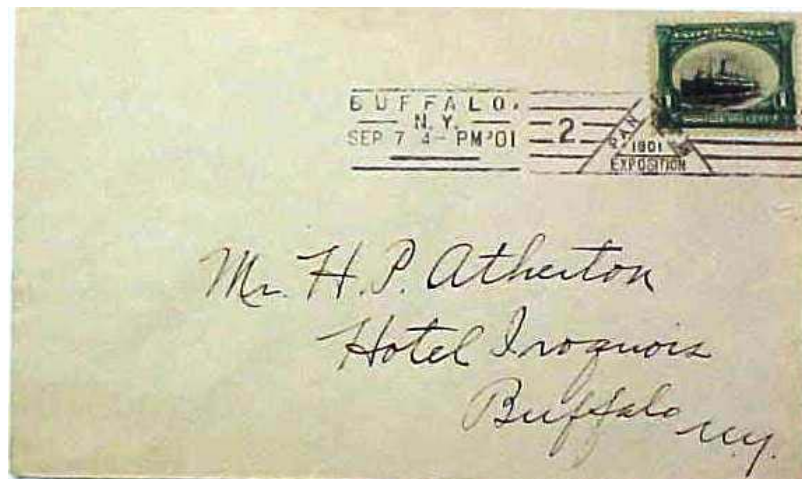 BUFFALO,
N.Y.
SEP 7 4-PM '01
2
PAN
1901
EXPOSITION
1
1
Mr. H. P. Atherton
Hotel Iroquois
Buffalo
N.Y.